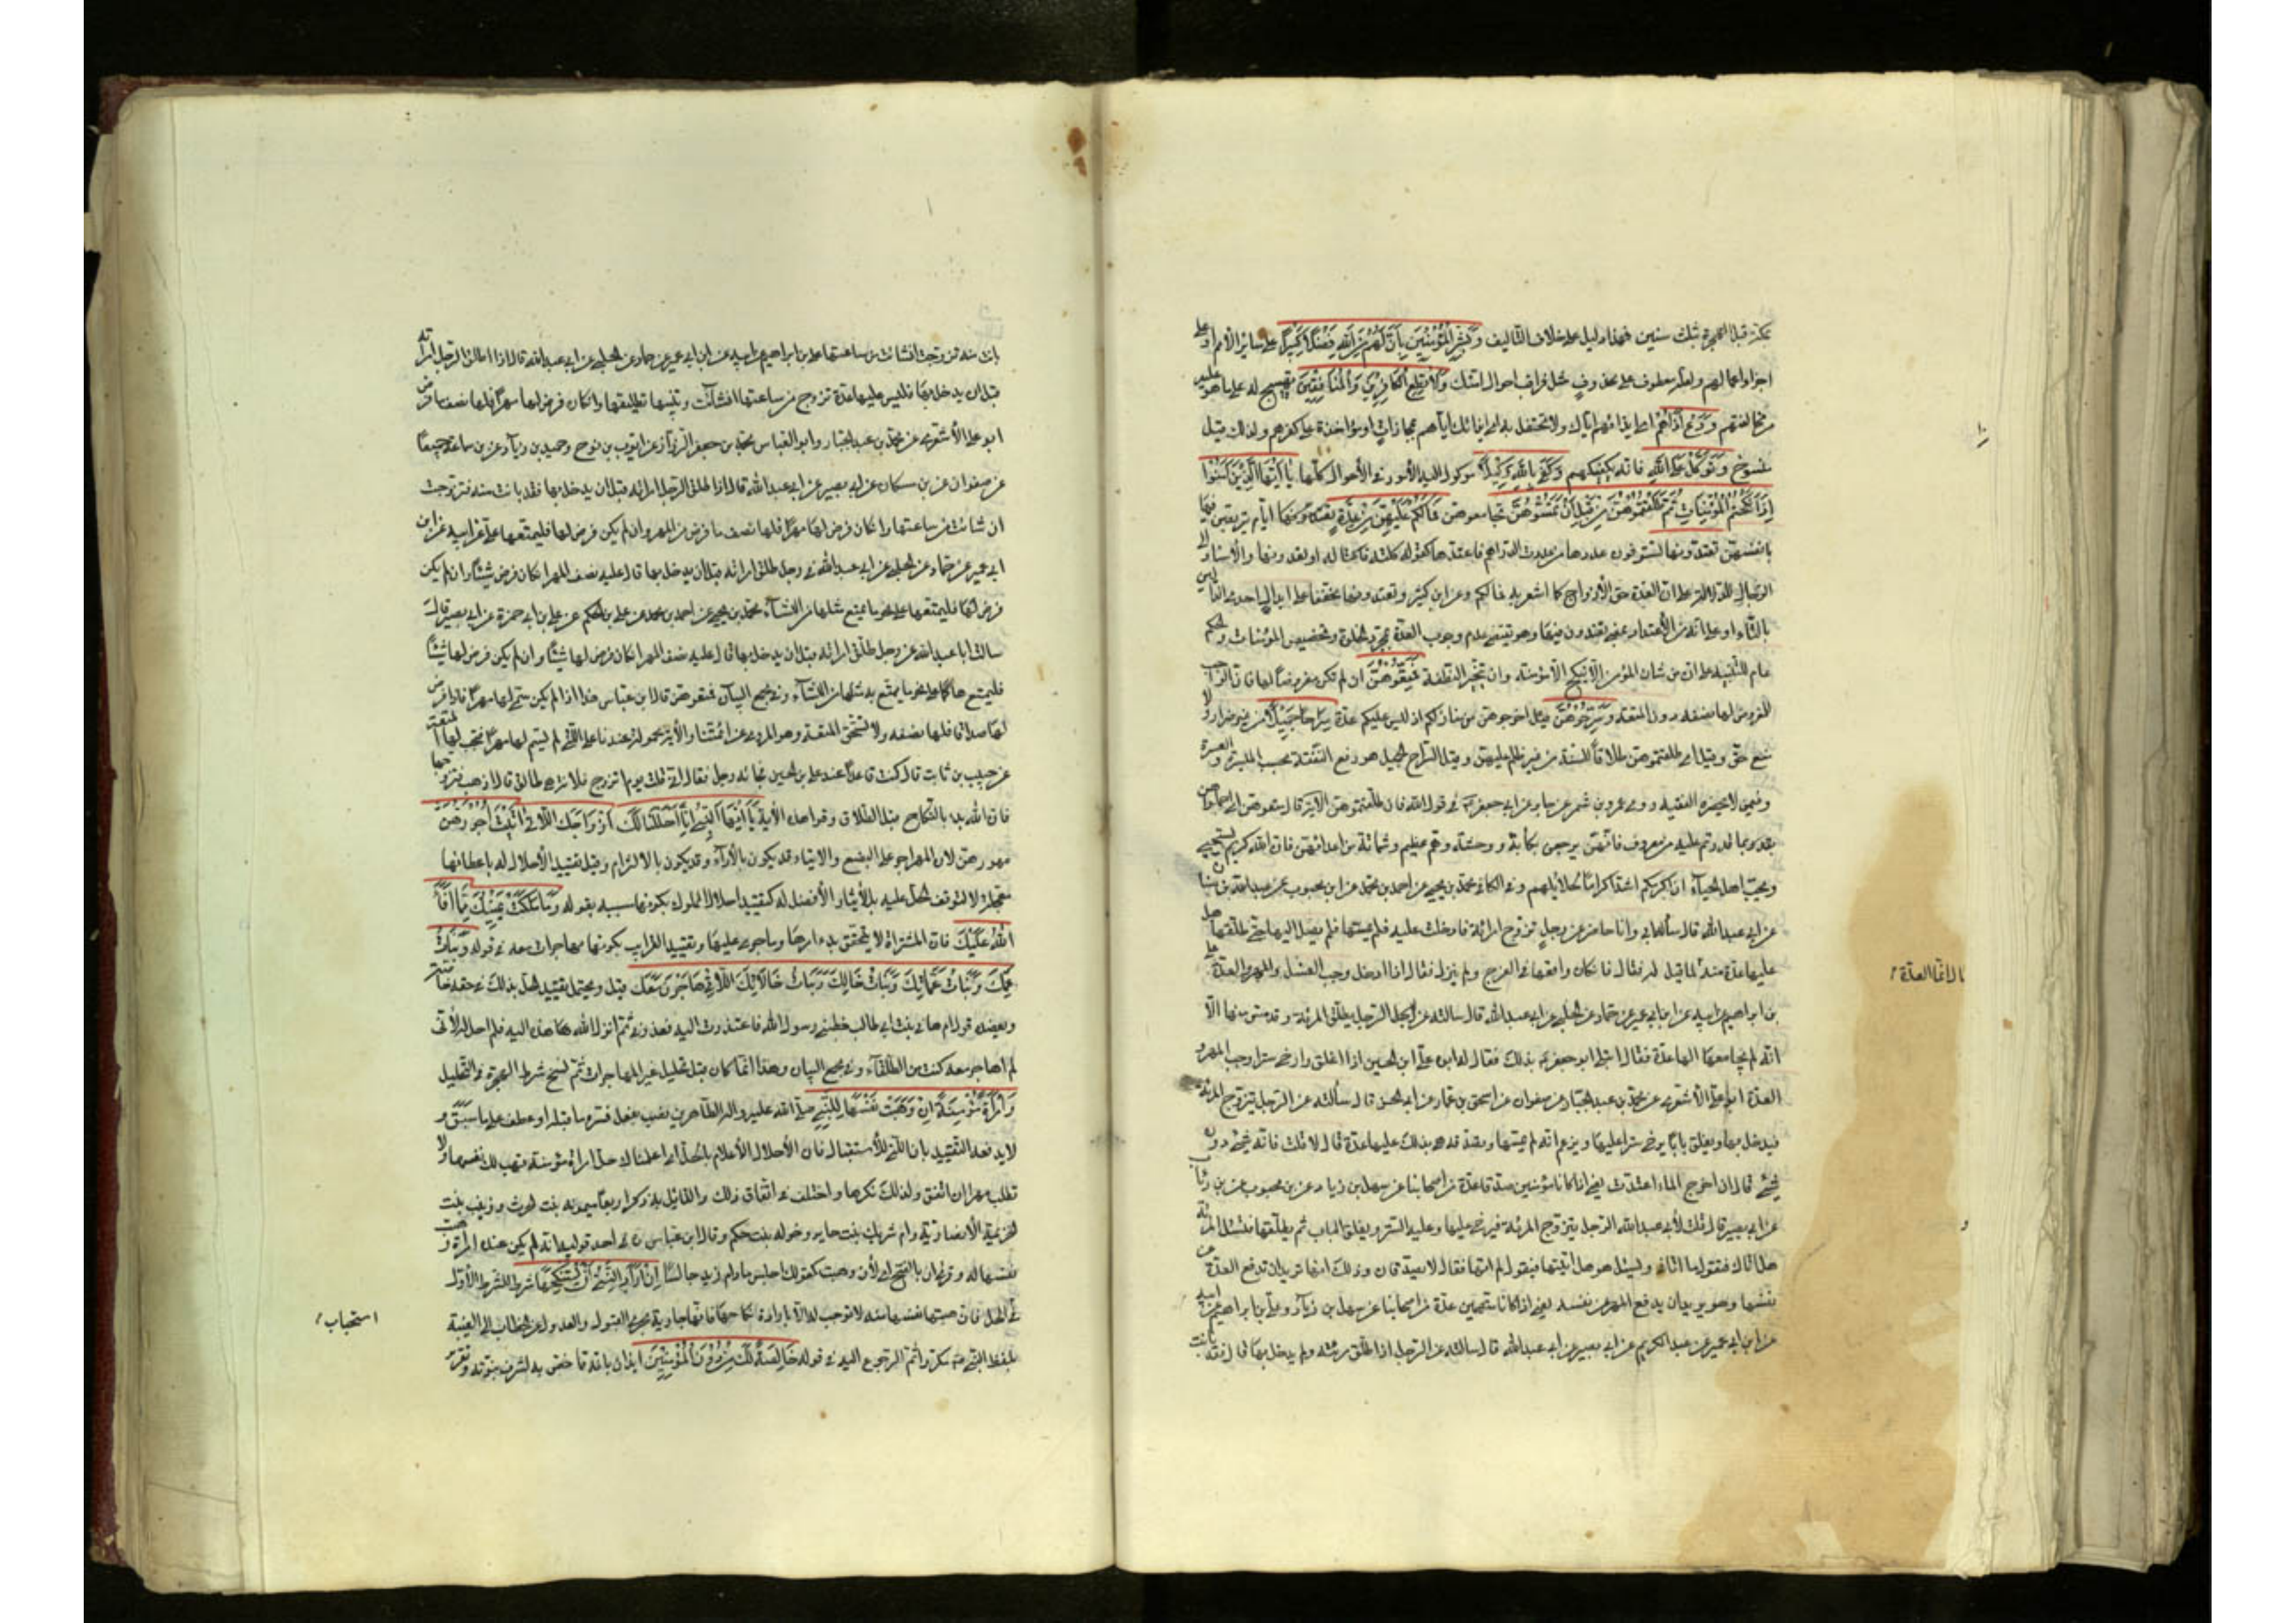 بمكة قبل الهجرة بثلث سنين فهذا دليل على خلاف التأليف وَبَشِّرِ الْمُؤْمِنينَ بِأَنَّ لَهُمْ مِنَ اللهِ فَضْلًا كَبيرًا على سائر الأمم او على
اجزاء اعمالهم ولعله معطوف على محذوف مثل فراقب احوال امتك وَلا تُطِعِ الْكافِرينَ وَالْمُنافِقينَ تهييج له على ما هو عليه
من مخالفتهم وَدَعْ أَذاهُمْ اي ايذائهم اياك ولا تحتفل به او ايذائك اياهم مجازات او مؤاخذة على كفرهم ولذلك قيل
منسوخ وَتَوَكَّلْ عَلَى اللهِ فانه يكفيكهم وَكَفى بِاللهِ وَكيلًا موكولا اليه الأمور في الأحوال كلها يا أَيُّهَا الَّذينَ آمَنُوا
إِذا نَكَحْتُمُ الْمُؤْمِناتِ ثُمَّ طَلَّقْتُمُوهُنَّ مِنْ قَبْلِ أَنْ تَمَسُّوهُنَّ تجامعوهن فَما لَكُمْ عَلَيْهِنَّ مِنْ عِدَّةٍ تَعْتَدُّونَها ايام يتربصن فيها
بانفسهن تعتدونها تستوفون عددها من عددت الدراهم فاعتدها كقولك كلته فاكتاله او تعدونها والأسناد الى
الرجال للدلالة على ان العدة حق الأزواج كما اشعر به فما لكم وعن ابن كثير تعتدونها مخففا على ابدال احدى الدالين
بالتاء او على انه من الأعتداء بمعنى تعتدون فيها وهو يقتضي عدم وجوب العدة بمجرد الخلوة وتخصيص المؤمنات والحكم
عام للتنبيه على ان من شان المؤمن الا ينكح الا مؤمنة وان تخير النطفته فَمَتِّعُوهُنَّ ان لم تكن مفروضا لها فان الواجب
للمفروض لها نصفه دون المتعة وَسَرِّحُوهُنَّ قيل اخرجوهن من منازلكم اذ ليس عليكم عدة سَراحًا جَميلًا من غير ضرار ولا
منع حق وقيل اي طلقتموهن طلاقا للسنة من غير ظلم عليهن وقيل السراح الجميل هو دفع المتعة بحسب الميسرة والعسرة
وفيمن لا يحضره الفقيه روى عمرو بن شمر عن جابر عن ابي جعفر في قول الله فان طلقتموهن الآية قال متعوهن اي اجملوهن
بما قدرتم عليه من معروف فانهن يرجعن بكآبة ووحشة وهم عظيم وشماتة من اعدائهن فان الله كريم يستحيي
ويحب اهل الحياء ان اكرمكم اشدكم اكراما لحلائلهم وفي الكافي محمد بن يحيى عن احمد بن محمد عن ابن محبوب عن عبد الله بن سنان
عن ابي عبد الله قال سأله ابي وانا حاضر عن رجل تزوج امرأة فادخلت عليه فلم يمسها فلم يصل اليها حتى طلقها هل
عليها عدة منه قيل له فقال فان كان واقعها في الفرج ولم ينزل فقال اذا ادخل وجب الغسل والمهر والعدة علي
قال انما العدة
بن ابراهيم عن ابيه عن ابن ابي عمير عن حماد عن الحلبي عن ابي عبد الله قال سالته عن الرجل يطلق المرءة وقد مس منها الا
انه لم يجامعها الها عدة فقال ابتلي ابو جعفر بذلك فقال له ابوه علي ابن الحسين اذا اغلق وارخى سترا وجب المهر و
العدة ابو علي الأشعري عن محمد بن عبد الجبار عن صفوان عن اسحق بن عمار عن ابي الحسن قال سألته عن الرجل يتزوج المرءة
فيدخل بها ويغلق بابا ويرخي سترا عليها ويزعم انه لم يمسها وتصدقه هي بذلك عليها عدة قال لا قلت فانه شيء دون
شيء قال ان اخرج الماء اعتدت يعني اذا كانا مؤمنين صدقا عدة من اصحابنا عن سهل بن زياد عن ابن محبوب عن ابن رئاب
عن ابي بصير قال قلت لأبي عبد الله الرجل يتزوج المرءة فيرخي عليها وعليه الستر ويغلق الباب ثم يطلقها فتسئل المرءة
هل اتاك فتقول ما اتاني ويسئل هو هل اتيتها فيقول لم اتها فقال لا يصدقان وذلك انها تريد ان تدفع العدة عن
نفسها وهو يريد ان يدفع المهر عن نفسه يعني اذا كانا متهمين عدة من اصحابنا عن سهل بن زياد وعلي بن ابراهيم عن ابيه
عن ابن ابي عمير عن عبد الكريم عن ابي بصير عن ابي عبد الله قال سالته عن الرجل اذا طلق امرئته ولم يدخل بها قال فقد بانت
بانت منه تزوجت ان شائت من ساعتها علي بن ابراهيم عن ابيه عن ابن ابي عمير عن حماد عن الحلبي عن ابي عبد الله قال اذا طلق الرجل امرأته
قبل ان يدخل بها فليس عليها عدة تزوج من ساعتها ان شائت وتبينها تطليقة وان كان فرض لها مهرا فلها نصف ما فرض
ابو علي الأشعري عن محمد بن عبد الجبار وابو العباس محمد بن جعفر الرزاز عن ايوب بن نوح وحميد بن زياد عن ابن سماعة جميعا
عن صفوان عن ابن مسكان عن ابي بصير عن ابي عبد الله قال اذا طلق الرجل امرأته قبل ان يدخل بها فقد بانت منه فتزوجت
ان شائت من ساعتها وان كان فرض لها مهرا فلها نصف ما فرض من المهر وان لم يكن فرض لها فليمتعها علي عن ابيه عن ابن
ابي عمير عن حماد عن الحلبي عن ابي عبد الله في رجل طلق امرأته قبل ان يدخل بها قال عليه نصف المهر ان كان فرض شيئا وان لم يكن
فرض لها فليمتعها على نحو ما يمتع مثلها من النساء محمد بن يحيى عن احمد بن محمد عن علي بن الحكم عن علي بن ابي حمزة عن ابي بصير قال
سالت ابا عبد الله عن رجل طلق امرأته قبل ان يدخل بها قال عليه نصف المهر ان كان فرض لها شيئا وان لم يكن فرض لها شيئا
فليمتعها على نحو ما يمتع به مثلها من النساء وفي مجمع البيان فمتعوهن قال ابن عباس هذا اذا لم يكن سمى لها مهرا فاذا فرض
لها صداقا فلها نصفه ولا تستحق المتعة وهو المروي عن ائمتنا والأية محمولة عندنا على التي لم يسم لها مهرا فتجب لها المتعة
عن حبيب بن ثابت قال كنت قاعدا عند علي بن الحسين فجائه رجل فقال اني قلت يوم اتزوج فلانة فهي طالق قال اذهب فتزوجها
فان الله بدا بالنكاح قبل الطلاق وقرا هذه الأية يا أَيُّهَا النَّبِيُّ إِنّا أَحْلَلْنا لَكَ أَزْواجَكَ اللّاتي آتَيْتَ أُجُورَهُنَّ
مهورهن لان المهر اجر على البضع والايتاء قد يكون بالأداء وقد يكون بالالتزام وقيل تقييد الأحلال له باعطائها
معجلة لا لتوقف الحل عليه بل لأيثار الأفضل له كتقييد احلال المملوك بكونها مسبيه بقوله وَما مَلَكَتْ يَمينُكَ مِمّا أَفاءَ
اللهُ عَلَيْكَ فان المشتراة لا يتحقق بدء امرها وما جرى عليها وتقييد القرايب بكونها مهاجرات معه في قوله وَبَناتِ
عَمِّكَ وَبَناتِ عَمّاتِكَ وَبَناتِ خالِكَ وَبَناتِ خالاتِكَ اللّاتي هاجَرْنَ مَعَكَ قيل ويحتمل تقييد الحل بذلك في حقه خاصة
ويعضده قول ام هاني بنت ابي طالب خطبني رسول الله فاعتذرت اليه فعذرني ثم انزل الله هذه الاية فلم احل له لأني
لم اهاجر معه كنت من الطلقاء وفي مجمع البيان وهذا انما كان قبل تحليل غير المهاجرات ثم نسخ شرط الهجرة في التحليل
وَامْرَأَةً مُؤْمِنَةً إِنْ وَهَبَتْ نَفْسَها لِلنَّبِيِّ صلى الله عليه واله الطاهرين نصب بفعل فسره ما قبله او عطف على ما سبق و
لا يدفعه التقييد بان التي للأستقبال فان الأحلال الأعلام بالحل اي اعلمناك حل امرأة مؤمنة تهب لك نفسها ولا
تطلب مهرا ان اتفق ولذلك نكرها واختلف في اتفاق ذلك والقائل به ذكر اربعا ميمونة بنت الحرث وزينب بنت
خزيمة الأنصارية وام شريك بنت جابر وخولة بنت حكيم وقال ابن عباس لم يكن عنده امرأة وهبت
نفسها له وقرئ ان بالفتح اي لأن وهبت كقولك اجلس ما دام زيد جالسا إِنْ أَرادَ النَّبِيُّ أَنْ يَسْتَنْكِحَها شرط للشرط الأول
في الحل فان هبتها نفسها منه لا توجب له الا بارادة نكاحها فانها جارية مجرى القبول والعدول عن الخطاب الى الغيبة
استحباب
بلفظ النبي مكررا ثم الرجوع اليه في قوله خالِصَةً لَكَ مِنْ دُونِ الْمُؤْمِنينَ ايذان بانه مما خص به لشرف نبوته وتقرير